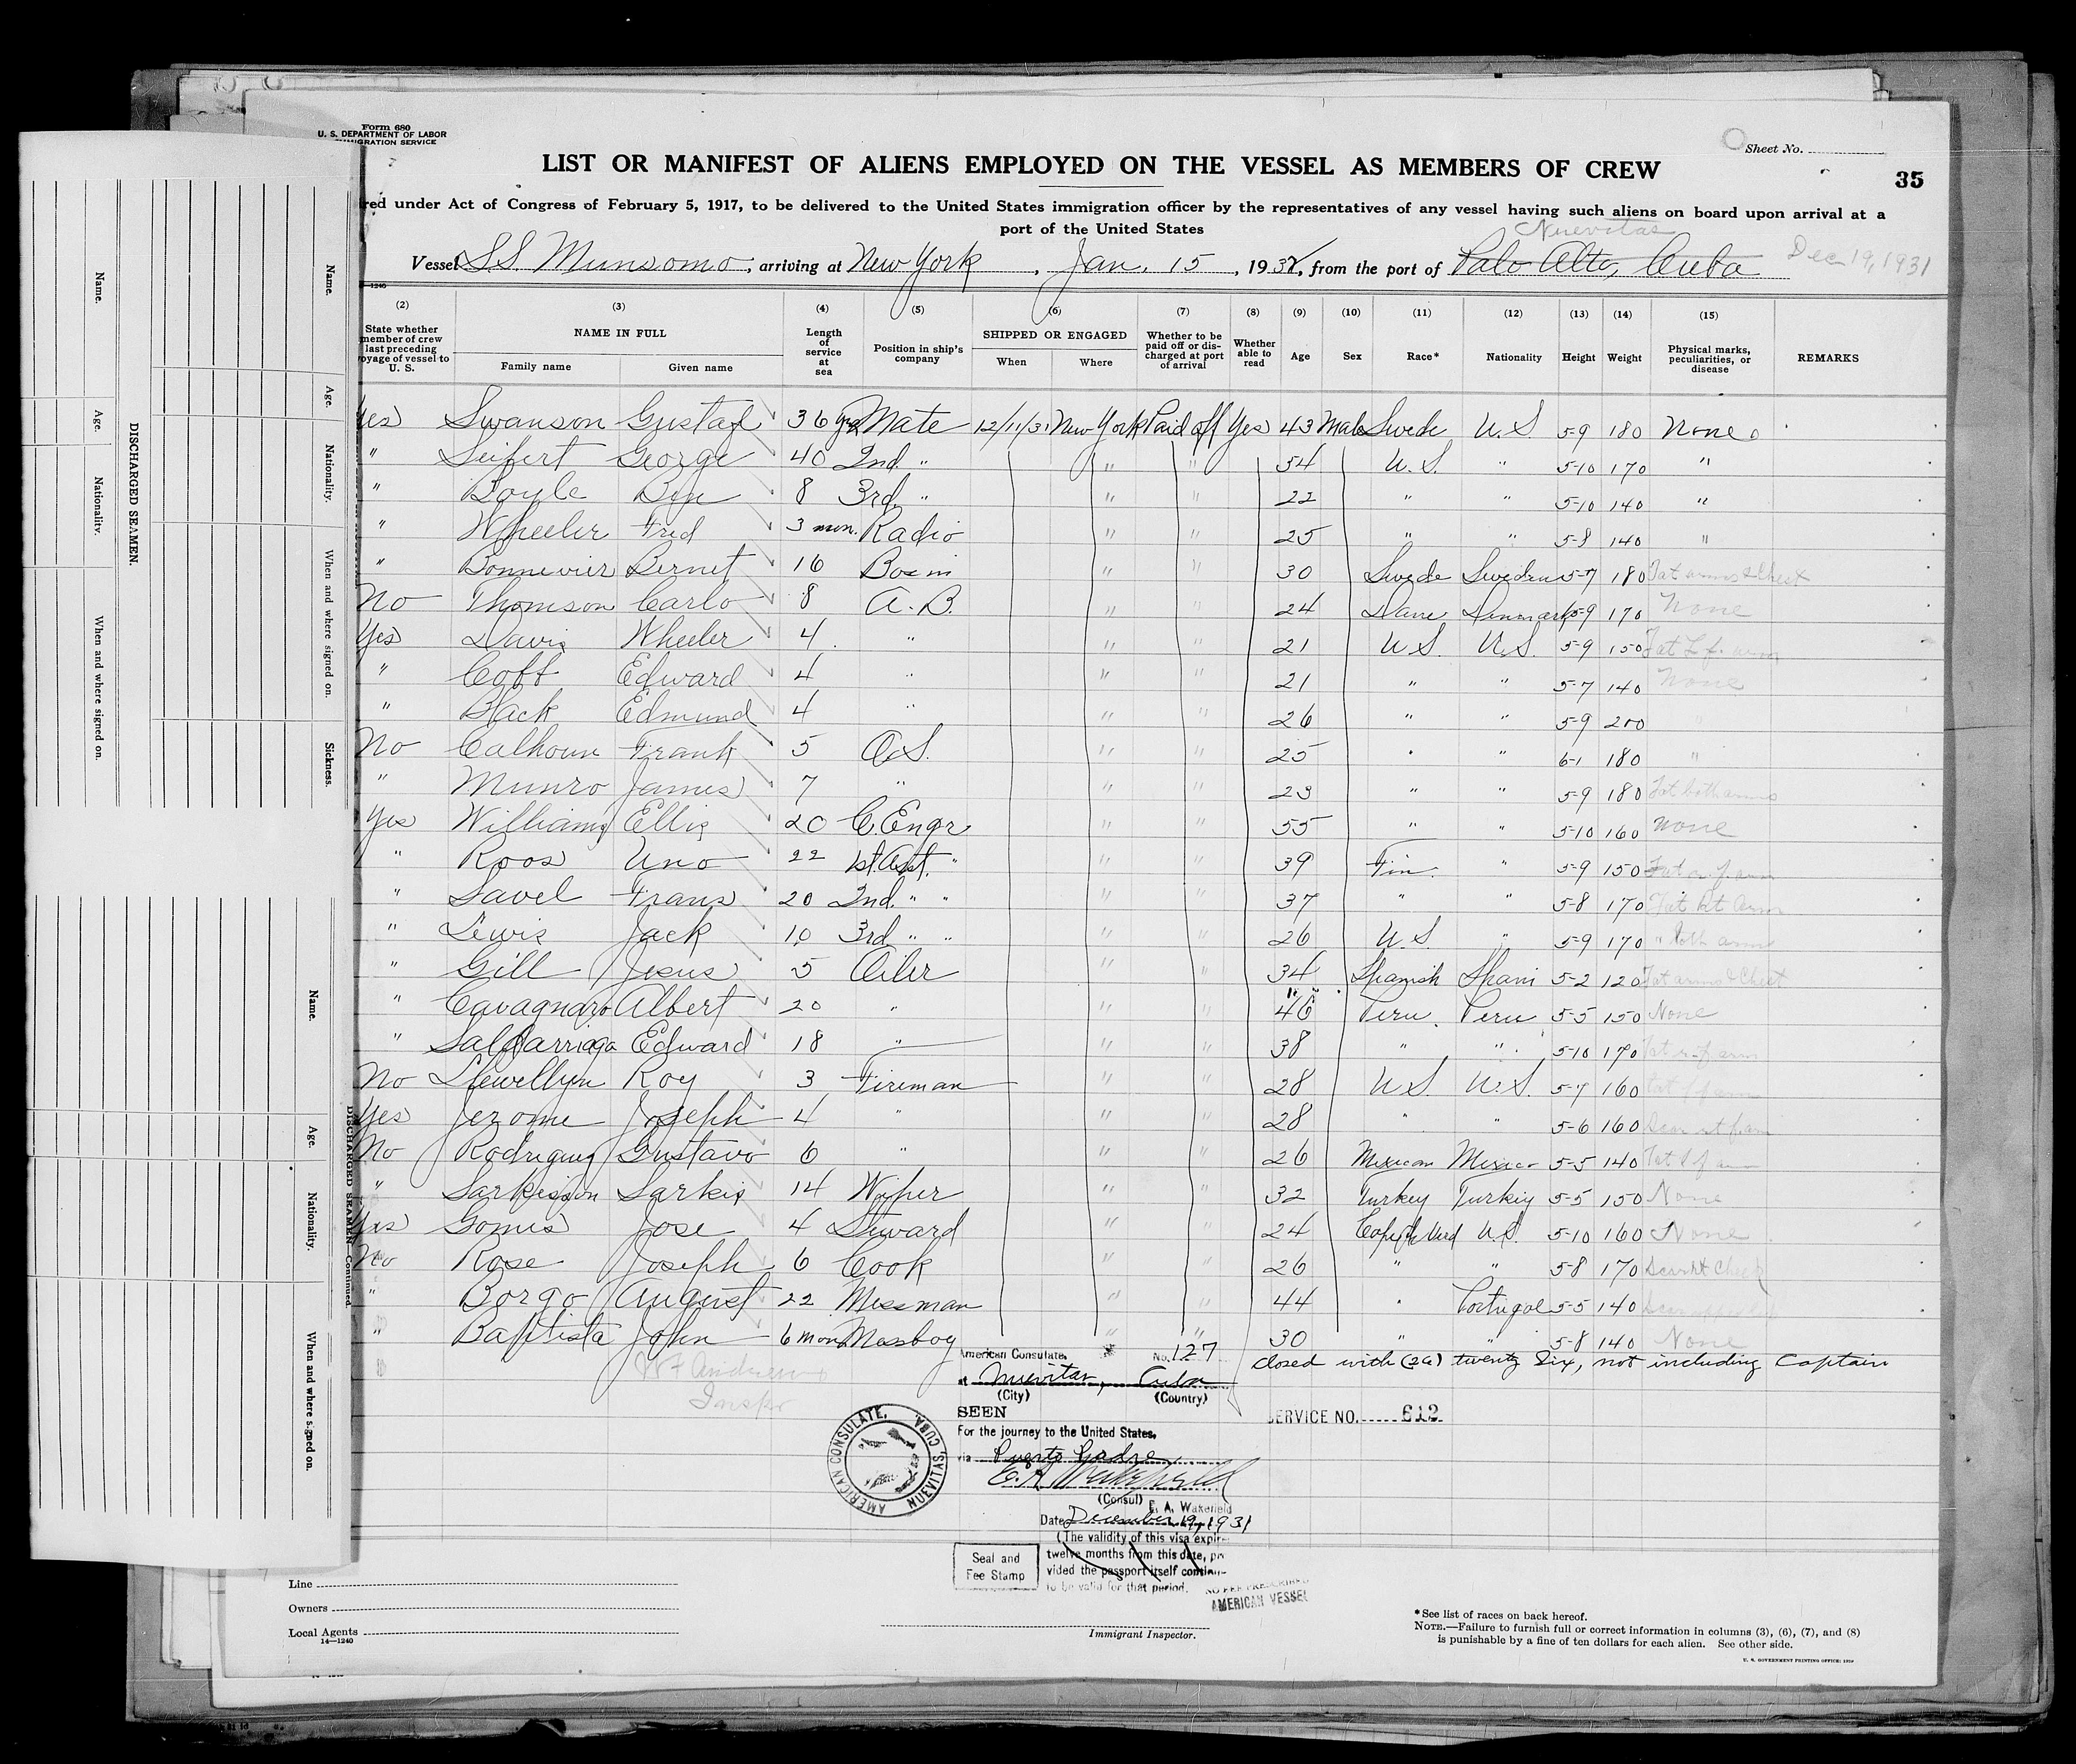 Form 680
U. S. DEPARTMENT OF LABOR
IMMIGRATION SERVICE
Sheet No.
LIST OR MANIFEST OF ALIENS EMPLOYED ON THE VESSEL AS MEMBERS OF CREW
35
red under Act of Congress of February 5, 1917, to be delivered to the United States immigration officer by the representatives of any vessel having such aliens on board upon arrival at a
port of the United States
Nuevitas
Vessel SS. Munsomo, arriving at New York, Jan. 15, 1932, from the port of Palo Alto, Cuba Dec 19, 1931
(2) (3) (4) (5) (6) (7) (8) (9) (10) (11) (12) (13) (14) (15)
State whether member of crew last preceding voyage of vessel to U. S.
NAME IN FULL
Family name Given name
Length of service at sea
Position in ship's company
SHIPPED OR ENGAGED
When Where
Whether to be paid off or discharged at port of arrival
Whether able to read
Age Sex Race* Nationality Height Weight
Physical marks, peculiarities, or disease
REMARKS
Yes Swanson Gustaf 36 yrs Mate 12/11/31 New York Paid off Yes 43 Male Swede U.S. 5-9 180 None
" Seifert George 40 2nd. " " " 54 U.S. " 5-10 170 "
" Boyle Ben 8 3rd. " " " 22 " " 5-10 140 "
" Wheeler Fred 3 mon. Radio " " 25 " " 5-8 140 "
" Bonnevier Bernet 16 Bosin " " 30 Swede Sweden 5-7 180 Tat arms & Chest
No Thomson Carlo 8 A.B. " " 24 Dane Denmark 5-9 170 None
Yes Davis Wheeler 4 " " " 21 U.S. U.S. 5-9 150 Tat L f. arm
" Coft Edward 4 " " " 21 " " 5-7 140 None
" Black Edmund 4 " " " 26 " " 5-9 200 "
No Calhoun Frank 5 O.S. " " 25 " " 6-1 180 "
" Munro James 7 " " " 23 " " 5-9 180 Tat both arms
Yes Williams Ellis 20 C. Engr " " 55 " " 5-10 160 None
" Roos Uno 22 1st Asst. " " " 39 Fin. " 5-9 150 Tat r. f. arm
" Savel Frans 20 2nd. " " " " 37 " " 5-8 170 Tat Rt Arm
" Lewis Jack 10 3rd " " " " 26 U.S. " 5-9 170 " both arms
" Gill Jesus 5 Oiler " " 34 Spanish Spain 5-2 120 Tat arms & Chest
" Cavagnaro Albert 20 " " " 46 Peru Peru 5-5 150 None
" Saldarriaga Edward 18 " " " 38 " " 5-10 170 Tat r. f. arm
No Llewellyn Roy 3 Fireman " " 28 U.S. U.S. 5-7 160
Yes Jerome Joseph 4 " " " 28 " " 5-6 160
No Rodriguez Gustavo 6 " " " 26 Mexican Mexico 5-5 140 Tat l f arm
" Sarkisjon Sarkis 14 Wiper " " 32 Turkey Turkey 5-5 150 None
Yes Gomes Jose 4 Steward " " 24 U.S. 5-10 160 None
No Rose Joseph 6 Cook " " 26 " " 5-8 170 Scar Rt Cheek
" Borgo August 22 Messman " " 44 " Portugal 5-5 140
" Baptista John 6 mon Messboy " " 30 " " 5-8 140 None
American Consulate. No. 127
closed with (26) twenty six, not including Captain
at Nuevitas, Cuba
(City) (Country)
Inspr
SEEN
SERVICE NO. 612
For the journey to the United States.
via Puerto Padre
(Consul) E. A. Wakefield
Date December 19, 1931
(The validity of this visa expires
twelve months from this date, pro
vided the passport itself continues
to be valid for that period.
Seal and
Fee Stamp
NO FEE PRESCRIBED
AMERICAN VESSEL
AMERICAN CONSULATE, NUEVITAS, CUBA
Line
Owners
Local Agents
14—1240
Immigrant Inspector.
*See list of races on back hereof.
NOTE.—Failure to furnish full or correct information in columns (3), (6), (7), and (8)
is punishable by a fine of ten dollars for each alien. See other side.
U. S. GOVERNMENT PRINTING OFFICE: 1930
DISCHARGED SEAMEN.
Name. Age. Nationality. When and where signed on.
Name. Age. Nationality. When and where signed on. Sickness.
DISCHARGED SEAMEN—Continued.
Name. Age. Nationality. When and where signed on.